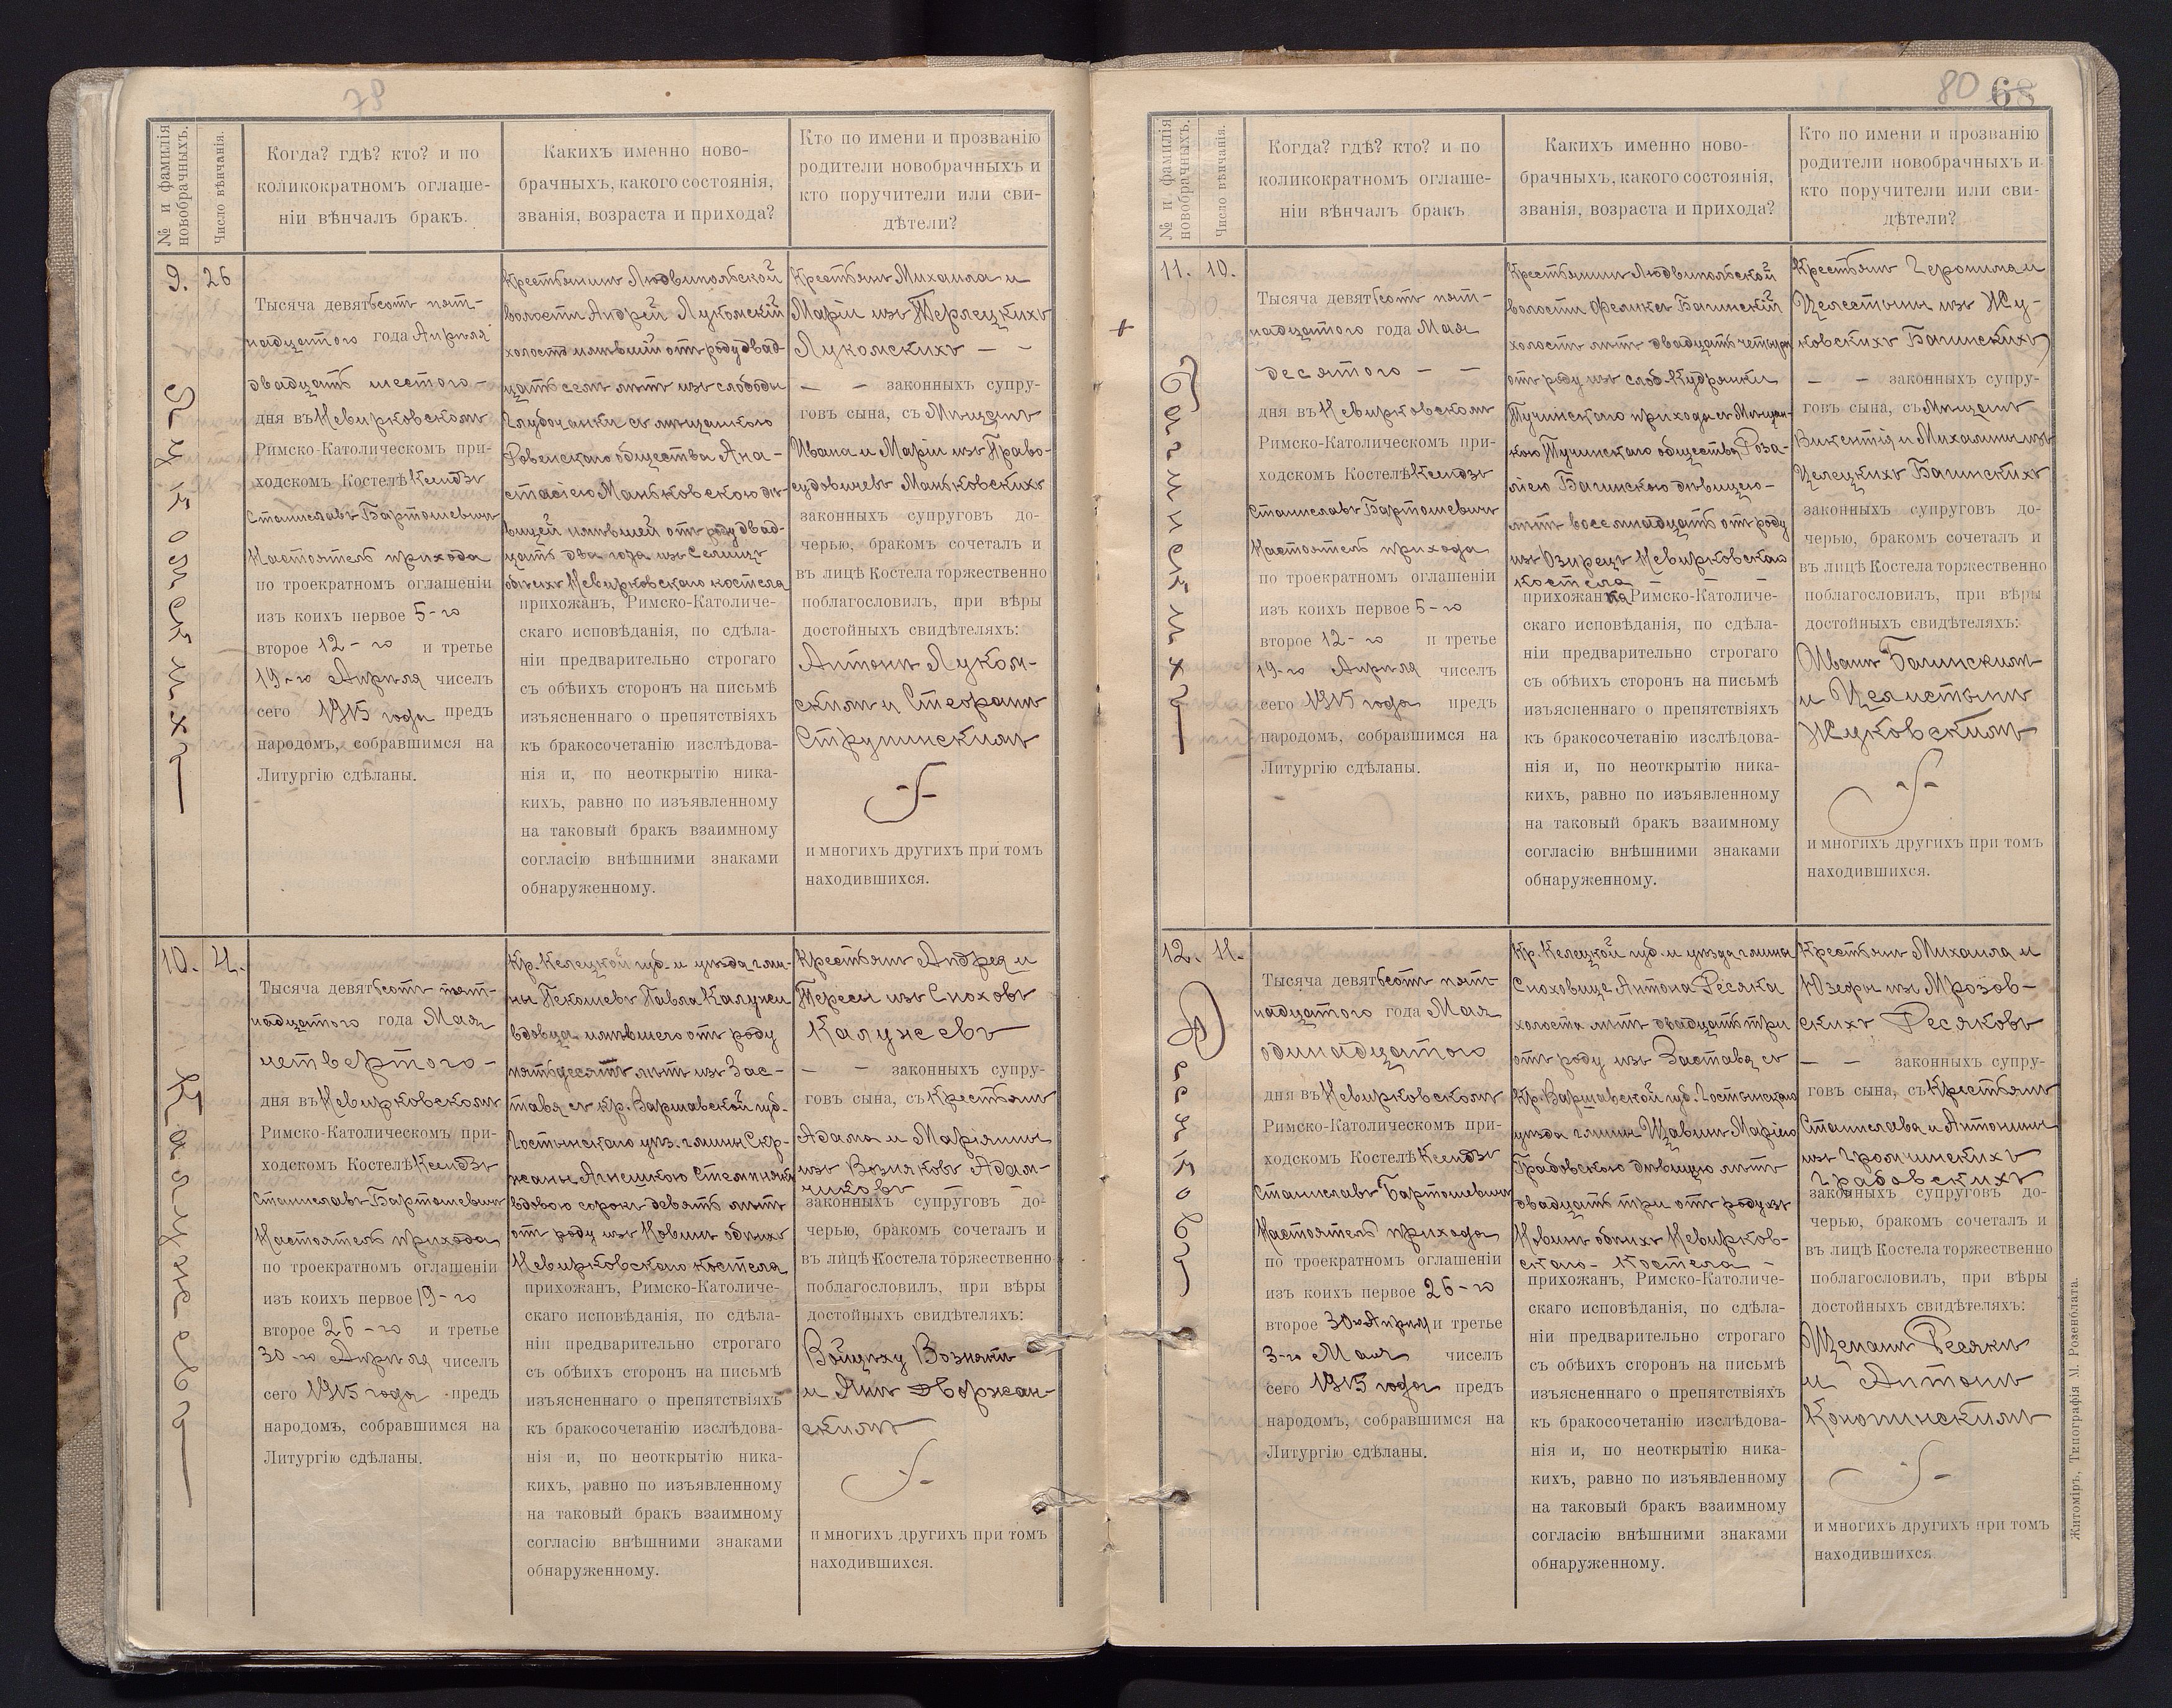 78
№ и фамилія новобрачныхъ.
Число вѣнчанія.
Когда? гдѣ? кто? и по
коликократномъ оглаше-
ніи вѣнчалъ бракъ.
Какихъ именно ново-
брачныхъ, какого состоянія,
званія, возраста и прихода?
Кто по имени и прозванію
родители новобрачныхъ и
кто поручители или сви-
дѣтели?
9.
26
Лукомскихъ
Тысяча девятьсотъ пят-
надцатого года Апрѣля
двадцать шестого -
дня въ Невирковскомъ
Римско-Католическомъ при-
ходскомъ Костелѣ Ксендзъ
Станиславъ Бартошевичъ
Настоятель прихода
по троекратномъ оглашеніи
изъ коихъ первое 5-го
второе 12-го и третье
19-го Апрѣля чиселъ
сего 1915 года предъ
народомъ, собравшимся на
Литургію сдѣланы.
Крестьянинъ Людвипольской
волости Андрей Лукомскій
холостъ имѣвшій отъ роду двад-
цать семь лѣтъ изъ слободы
Глубочанки съ мѣщанкою
Ровенскаго общества Ана-
стасіею Маньковскою дѣ-
вицей имѣвшей отъ роду двад-
цать два года изъ Селищъ
обоихъ Невирковскаго костела
прихожанъ, Римско-Католиче-
скаго исповѣданія, по сдѣла-
ніи предварительно строгаго
съ обѣихъ сторонъ на письмѣ
изъясненнаго о препятствіяхъ
къ бракосочетанію изслѣдова-
нія и, по неоткрытію ника-
кихъ, равно по изъявленному
на таковый бракъ взаимному
согласію внѣшними знаками
обнаруженному.
Крестьянъ Михаила и
Маріи изъ Терлецкихъ
Лукомскихъ - -
- - законныхъ супру-
говъ сына, съ Мѣщанъ
Ивана и Маріи изъ Право-
судовичевъ Маньковскихъ
законныхъ супруговъ до-
черью, бракомъ сочеталъ и
въ лицѣ Костела торжественно
поблагословилъ, при вѣры
достойныхъ свидѣтеляхъ:
Антонъ Луком-
скимъ и Стефанъ
Струпинскимъ
и многихъ другихъ при томъ
находившихся.
10.
4.
Калужевъ
Тысяча девятьсотъ пят-
надцатого года Мая
четвертого -
дня въ Невирковскомъ
Римско-Католическомъ при-
ходскомъ Костелѣ Ксендзъ
Станиславъ Бартошевичъ
Настоятель прихода
по троекратномъ оглашеніи
изъ коихъ первое 19-го
второе 26-го и третье
30-го Апрѣля чиселъ
сего 1915 года предъ
народомъ, собравшимся на
Литургію сдѣланы.
Кр. Келецкой губ. и уѣзда гми-
ны Пекошевъ Павла Калужи
вдовца имѣвшего отъ роду
пятьдесятъ лѣтъ изъ Зас-
тавя съ кр. Варшавской губ.
Гостынскаго уѣз. гмины Скр-
жаны Агнешкою Стемпняк
вдовою сорокъ девять лѣтъ
отъ роду изъ Новинъ обоихъ
Невирковскаго костела
прихожанъ, Римско-Католиче-
скаго исповѣданія, по сдѣла-
ніи предварительно строгаго
съ обѣихъ сторонъ на письмѣ
изъясненнаго о препятствіяхъ
къ бракосочетанію изслѣдова-
нія и, по неоткрытію ника-
кихъ, равно по изъявленному
на таковый бракъ взаимному
согласію внѣшними знаками
обнаруженному.
Крестьянъ Андрея и
Тересы изъ Сноховъ
Калужевъ
- - законныхъ супру-
говъ сына, съ Крестьянъ
Адама и Маріянны
изъ Возняковъ Адам-
чиковъ
законныхъ супруговъ до-
черью, бракомъ сочеталъ и
въ лицѣ Костела торжественно
поблагословилъ, при вѣры
достойныхъ свидѣтеляхъ:
Войцѣху Вознякъ
и Янъ Дворжан-
скимъ
и многихъ другихъ при томъ
находившихся.
80 68
№ и фамилія новобрачныхъ.
Число вѣнчанія.
Когда? гдѣ? кто? и по
коликократномъ оглаше-
ніи вѣнчалъ бракъ
Какихъ именно ново-
брачныхъ, какого состоянія,
званія, возраста и прихода?
Кто по имени и прозванію
родители новобрачныхъ и
кто поручители или сви-
дѣтели?
+
11.
10.
Багинскихъ
Тысяча девятьсотъ пят-
надцатого года Мая
десятого - -
дня въ Невирковскомъ
Римско-Католическомъ при-
ходскомъ Костелѣ Ксендзъ
Станиславъ Бартошевичъ
Настоятель прихода
по троекратномъ оглашеніи
изъ коихъ первое 5-го
второе 12-го и третье
19-го Апрѣля чиселъ
сего 1915 года предъ
народомъ, собравшимся на
Литургію сдѣланы.
Крестьянинъ Людвипольской
волости Феликсъ Багинскій
холостъ лѣтъ двадцать четыри
отъ роду изъ слоб. Кудранки
Тучинскаго прихода съ Мѣщан-
кою Тучинскаго общества Роза-
ліею Багинскою дѣвицею -
лѣтъ восемнадцать отъ роду
изъ Озирецъ Невирковскаго
костела - -
прихожанъ, Римско-Католиче-
скаго исповѣданія, по сдѣла-
ніи предварительно строгаго
съ обѣихъ сторонъ на письмѣ
изъясненнаго о препятствіяхъ
къ бракосочетанію изслѣдова-
нія и, по неоткрытію ника-
кихъ, равно по изъявленному
на таковый бракъ взаимному
согласію внѣшними знаками
обнаруженному.
Крестьянъ Геронима и
Целестыны изъ Жу-
ковскихъ Багинскихъ
- - законныхъ супру-
говъ сына, съ Мѣщанъ
Викентія и Михалины изъ
Целецкихъ Багинскихъ
законныхъ супруговъ до-
черью, бракомъ сочеталъ и
въ лицѣ Костела торжественно
поблагословилъ, при вѣры
достойныхъ свидѣтеляхъ:
Иванъ Багинскимъ
и Целистынъ
Жуковскимъ
и многихъ другихъ при томъ
находившихся.
12.
11.
Фесяковъ
Тысяча девятьсотъ пят-
надцатого года Мая
одинадцатого
дня въ Невирковскомъ
Римско-Католическомъ при-
ходскомъ Костелѣ Ксендзъ
Станиславъ Бартошевичъ
Настоятель прихода
по троекратномъ оглашеніи
изъ коихъ первое 26-го
второе 30-го Апрѣля и третье
3-го Мая чиселъ
сего 1915 года предъ
народомъ, собравшимся на
Литургію сдѣланы.
Кр. Келецкой губ. и уѣзда гмины
Сноховице Антона Фесяка
холоста лѣтъ двадцать три
отъ роду изъ Заставя съ
Кр. Варшавской губ. Гостынскаго
уѣзда гмины Щавинъ Маріею
Грабовскою дѣвицею лѣтъ
двадцать три отъ роду изъ
Новинъ обоихъ Невирков-
скаго - Костела -
прихожанъ, Римско-Католиче-
скаго исповѣданія, по сдѣла-
ніи предварительно строгаго
съ обѣихъ сторонъ на письмѣ
изъясненнаго о препятствіяхъ
къ бракосочетанію изслѣдова-
нія и, по неоткрытію ника-
кихъ, равно по изъявленному
на таковый бракъ взаимному
согласію внѣшними знаками
обнаруженному.
Крестьянъ Михаила и
Юзефы изъ Мрозов-
скихъ Фесяковъ
- - законныхъ супру-
говъ сына, съ Крестьянъ
Станислава и Антонины
изъ Громчинскихъ
Грабовскихъ
законныхъ супруговъ до-
черью, бракомъ сочеталъ и
въ лицѣ Костела торжественно
поблагословилъ, при вѣры
достойныхъ свидѣтеляхъ:
Щепанъ Фесякъ
и Антонъ
Конопинскимъ
и многихъ другихъ при томъ
находившихся
Житоміръ, Типографія М. Розенблата.